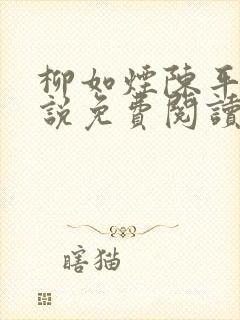 柳如煙陳平
說免費閱讀
瞎猫